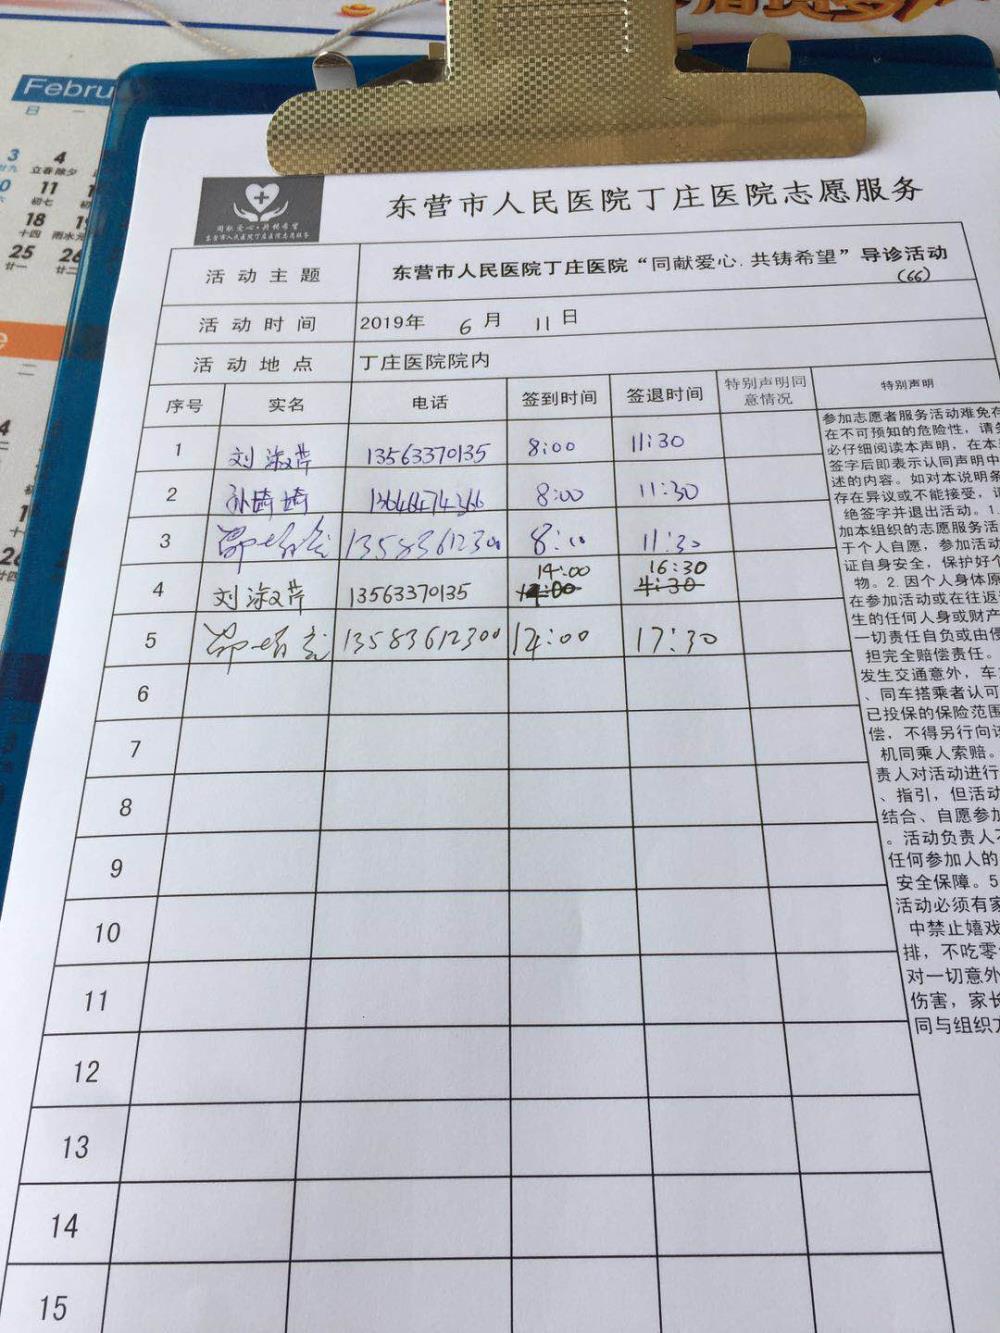 Febru
日 一
3 4
立春 除夕
11
初七
18
十四 雨水
25 26
廿一 廿二
同献爱心·共铸希望
东营市人民医院丁庄医院志愿服务
东营市人民医院丁庄医院志愿服务
活动主题 东营市人民医院丁庄医院“同献爱心.共铸希望”导诊活动
(66)
活动时间 2019年 6月 11日
活动地点 丁庄医院院内
序号 实名 电话 签到时间 签退时间 特别声明同意情况 特别声明
1 刘淑芹 13563370135 8:00 11:30
2 孙崎崎 13646474366 8:00 11:30
3 13583612300 8:00 11:30
4 刘淑芹 13563370135 14:00 16:30
4:30
5 13583612300 14:00 17:30
6
7
8
9
10
11
12
13
14
15
参加志愿者服务活动难免存
在不可预知的危险性，请务
必仔细阅读本声明，在本
签字后即表示认同声明中
述的内容。如对本说明条
存在异议或不能接受，
绝签字并退出活动。1.
加本组织的志愿服务活
于个人自愿，参加活动
证自身安全，保护好个
物。2.因个人身体原
在参加活动或在往返
生的任何人身或财产
一切责任自负或由侵
担完全赔偿责任。
发生交通意外，车
、同车搭乘者认可
已投保的保险范围
偿，不得另行向该
机同乘人索赔。
责人对活动进行
、指引，但活动
结合、自愿参加
。活动负责人不
任何参加人的
安全保障。5
活动必须有家
中禁止嬉戏
排，不吃零
对一切意外
伤害，家长
同与组织方